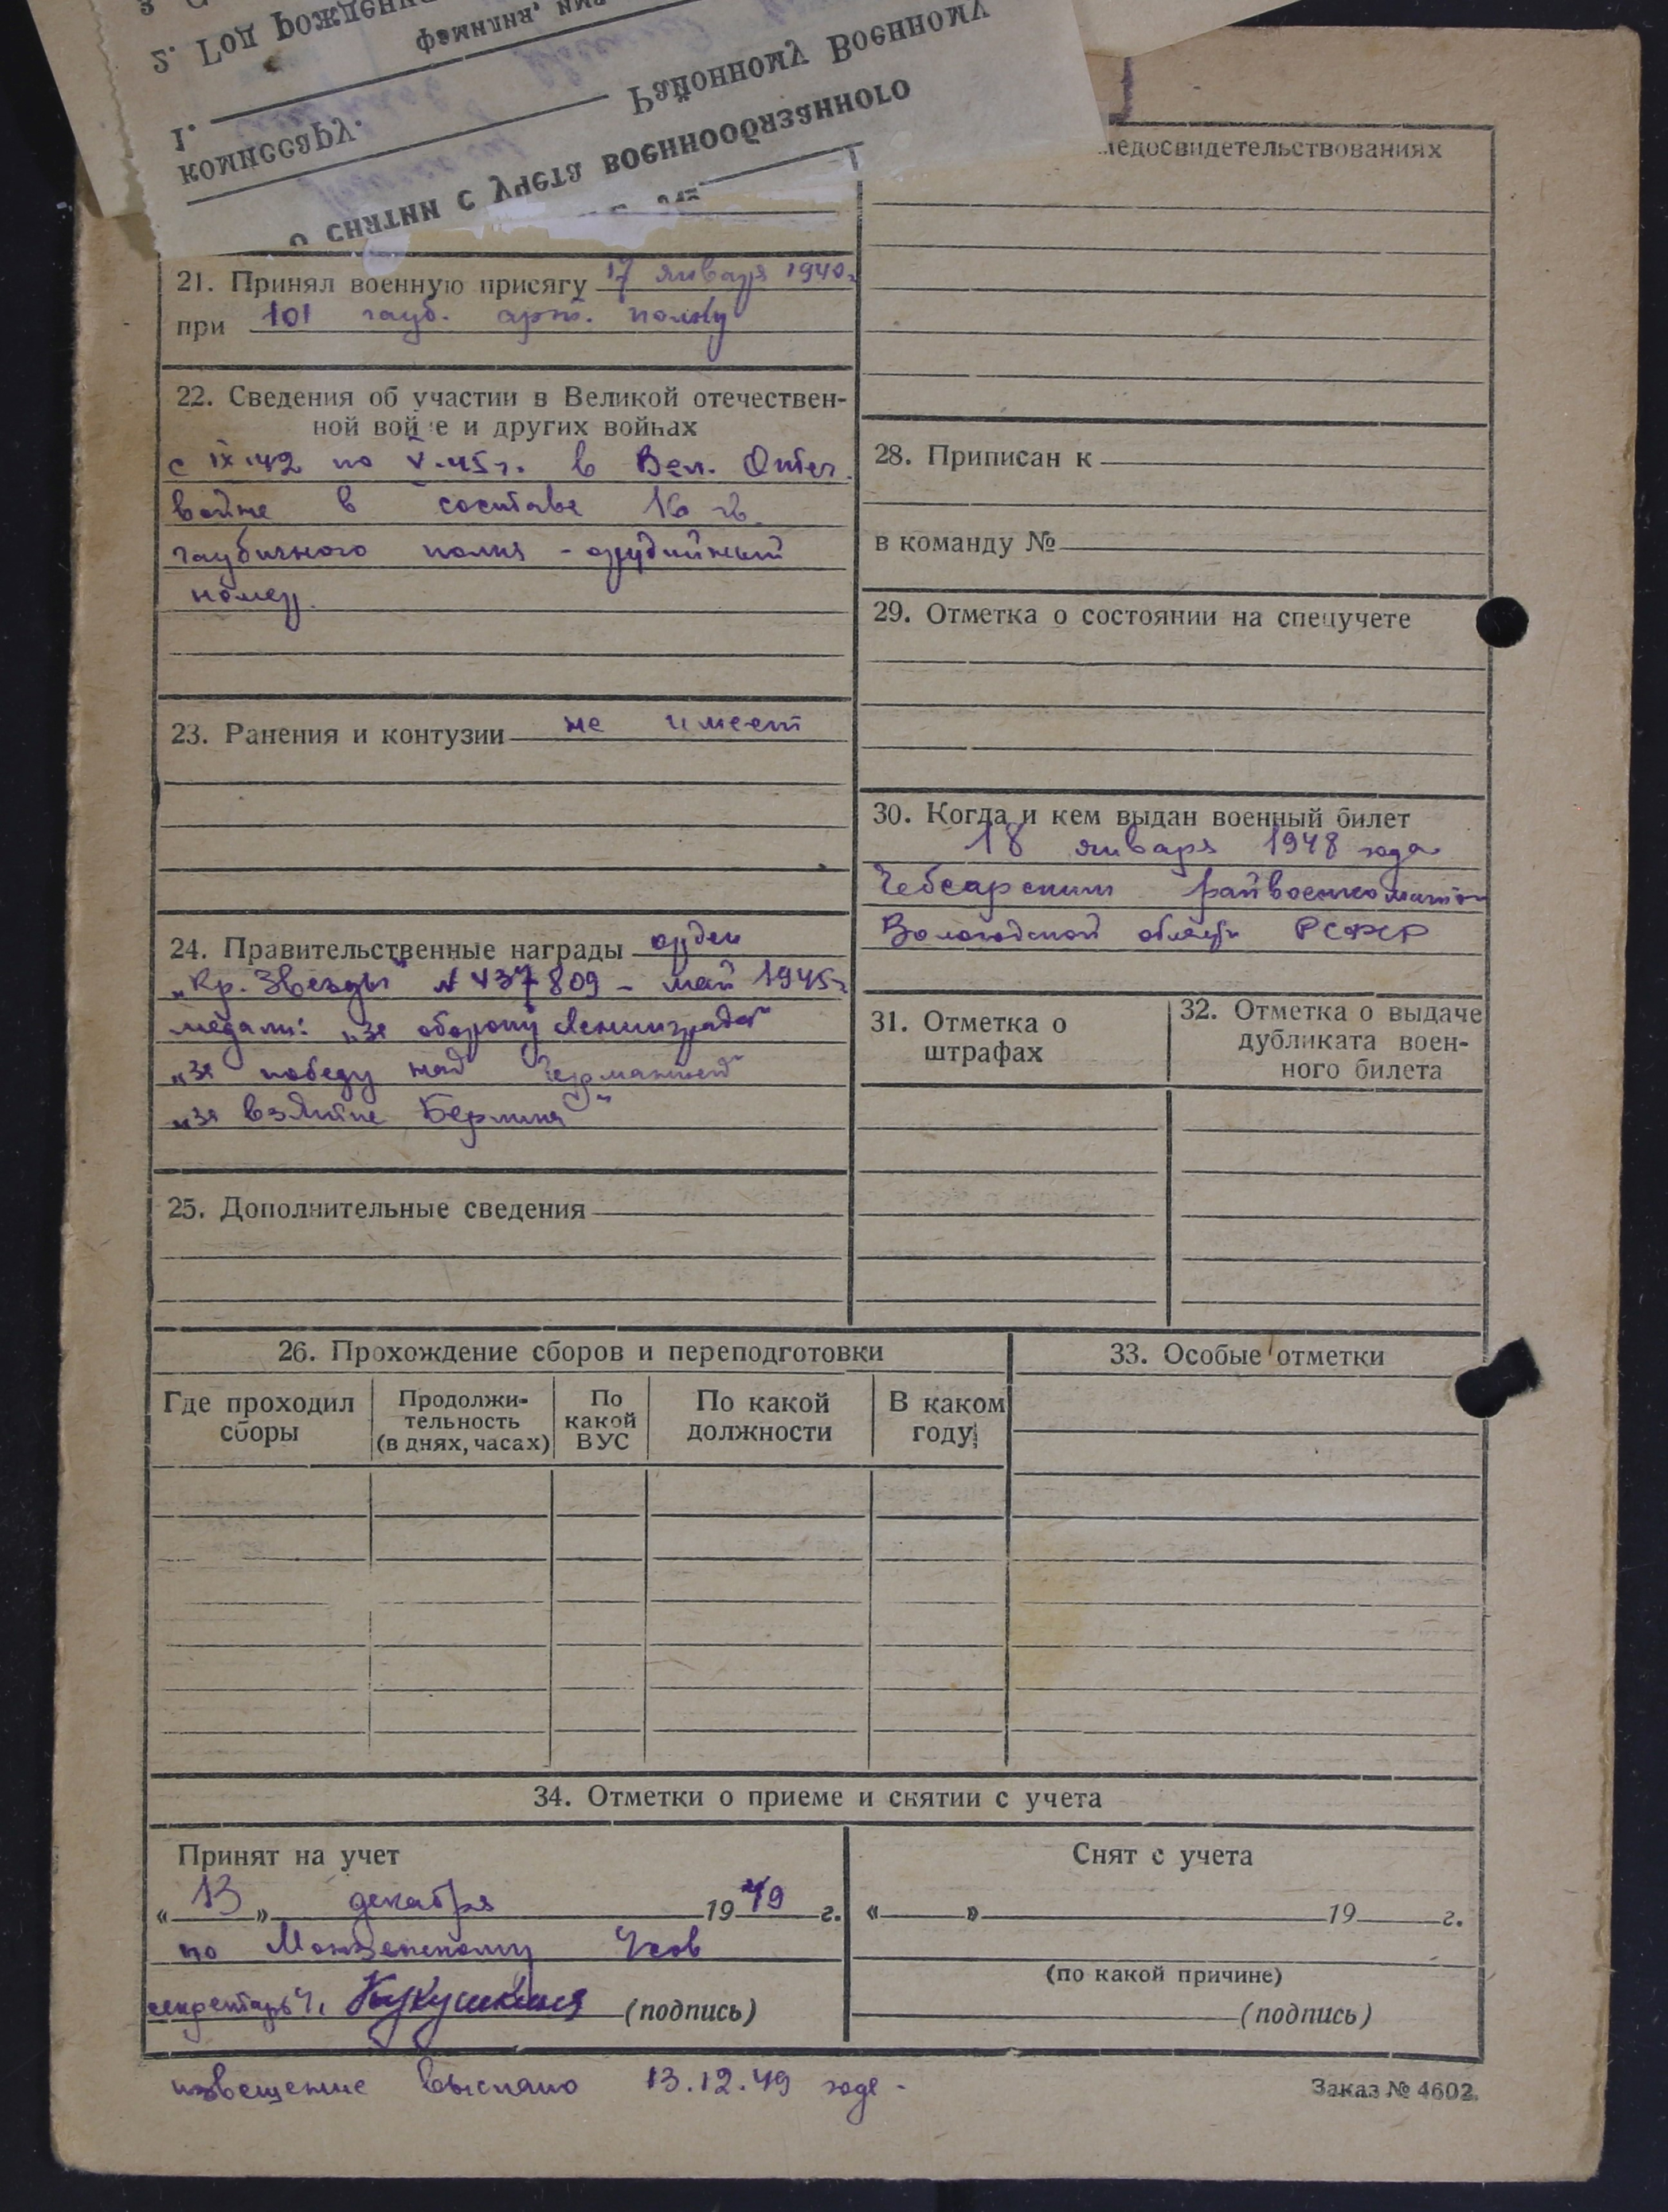 3
2. Год рождения
фамилия, имя
1.
Районному Военному
комиссару.
о снятии с учета военнообязанного
медосвидетельствованиях
21. Принял военную присягу 17 января 1940 г.
при 101 гауб. арт. полку
22. Сведения об участии в Великой отечествен-
ной войне и других войнах
с IX-42 по V-45 г. в Вел. Отеч.
войне в составе 16 гв.
гаубичного полка - орудийный
номер.
23. Ранения и контузии не имеет
24. Правительственные награды орден
„Кр. Звезды" № 437809 - май 1945 г.
медали: „за оборону Ленинграда"
„за победу над Германией"
„за взятие Берлина"
25. Дополнительные сведения
28. Приписан к
в команду №
29. Отметка о состоянии на спецучете
30. Когда и кем выдан военный билет
18 января 1948 года
Чебсарским райвоенкоматом
Вологодской области РСФСР
31. Отметка о
штрафах
32. Отметка о выдаче
дубликата воен-
ного билета
26. Прохождение сборов и переподготовки
Где проходил
сборы
Продолжи-
тельность
(в днях, часах)
По
какой
ВУС
По какой
должности
В каком
году
33. Особые отметки
34. Отметки о приеме и снятии с учета
Принят на учет
« 13 » декабря 1949 г.
по Монзенскому
секретарь Кукушкина (подпись)
Снят с учета
« » 19 г.
(по какой причине)
(подпись)
извещение выслано 13.12.49 года -
Заказ № 4602.